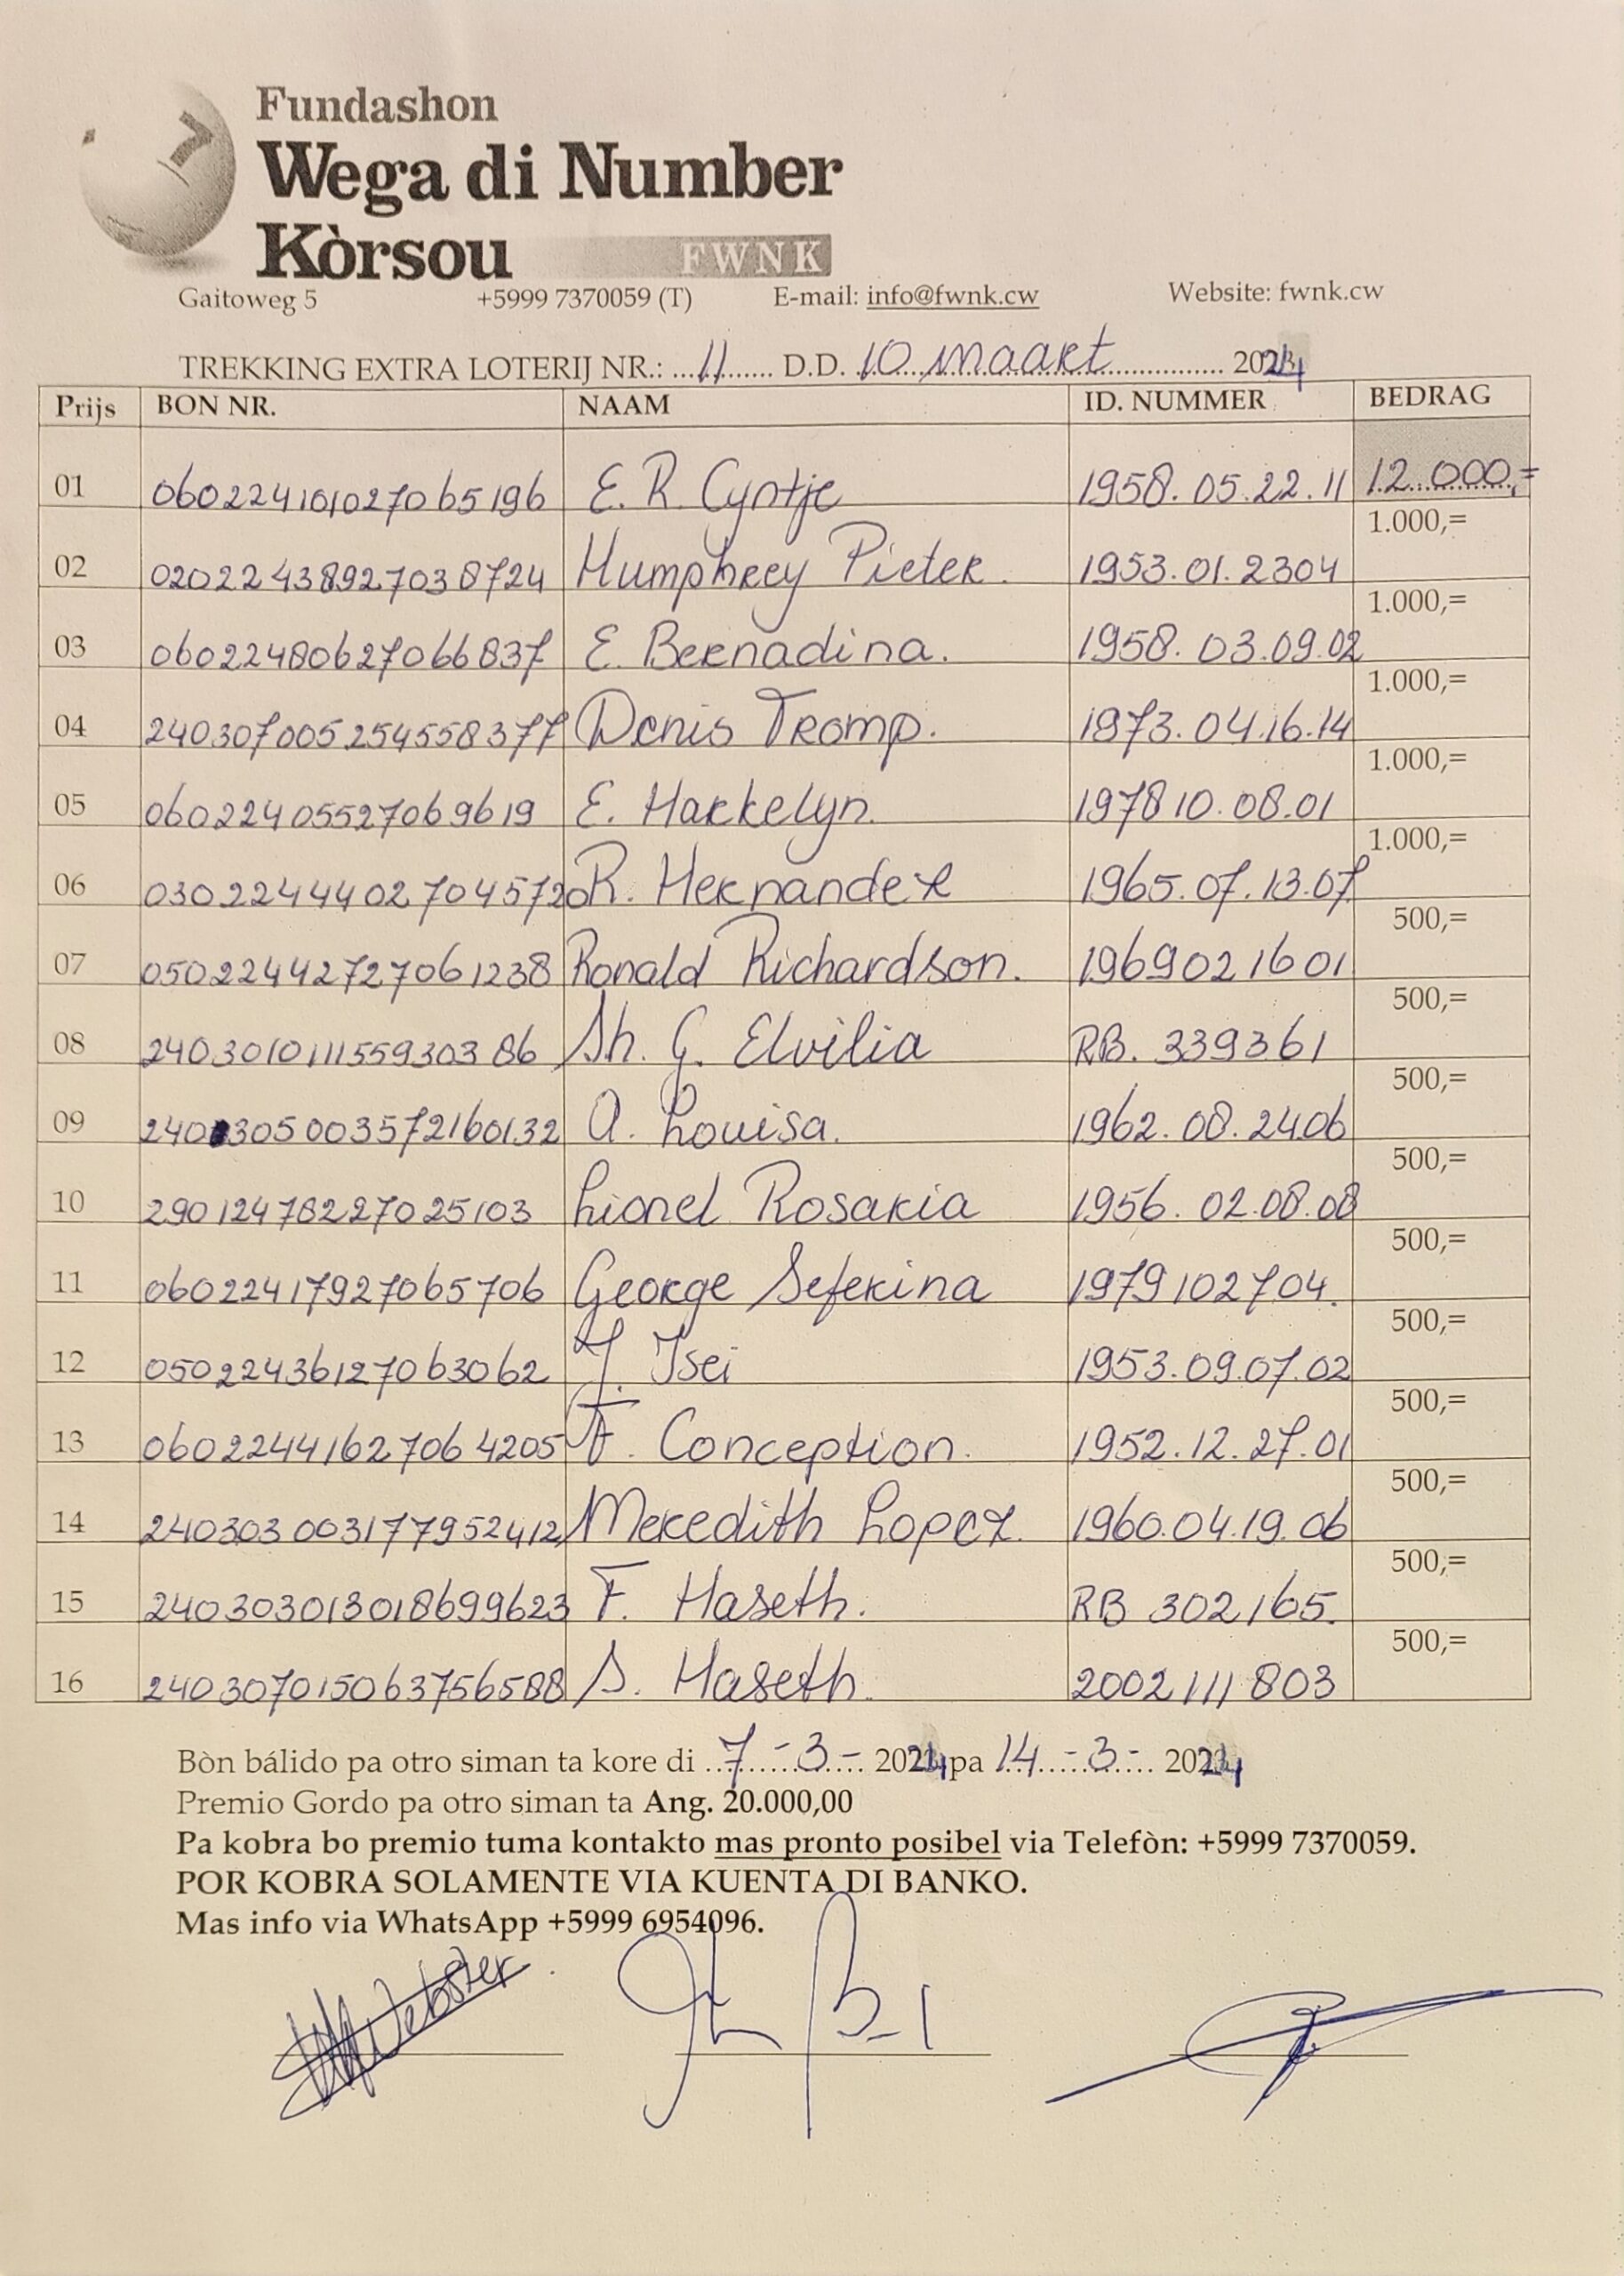 Fundashon
Wega di Number
Kòrsou FWNK
Gaitoweg 5 +5999 7370059 (T) E-mail: info@fwnk.cw Website: fwnk.cw
TREKKING EXTRA LOTERIJ NR.: 11 D.D. 10 maart 2024
Prijs BON NR. NAAM ID. NUMMER BEDRAG
01 060224101027065196 E. R. Cyntje 1958.05.22.11 12.000,=
02 02022438927038724 Humphrey Pieter. 1953.01.2304 1.000,=
03 06022480627066837 E. Bernadina. 1958.03.09.02 1.000,=
04 24030700525455837 7 Denis Tromp. 1973.04.16.14 1.000,=
05 06022405527069619 E. Markelyn. 1978 10.08.01 1.000,=
06 0302244402 7045720 R. Hernandez 1965.07.13.07 1.000,=
07 0502244272 7061238 Ronald Richardson. 1969021601 500,=
08 24030101115593 03 86 Sh. G. Elvilia RB. 339361 500,=
09 2403050035 72160132 A. Louisa. 1962.08.2406 500,=
10 2901247822 7025103 Lionel Rosaria 1956.02.08.08 500,=
11 0602241792 7065706 George Seferina 1979102704. 500,=
12 0502243612 7063062 J. Isei 1953.09.07.02 500,=
13 0602244162 706 4205 F. Conception. 1952.12.27.01 500,=
14 240303003177952412 Meredith Lopez. 1960.04.19.06 500,=
15 240303013018699623 F. Haseth. RB 302165. 500,=
16 240307015063756588 S. Haseth. 2002111803 500,=
Bòn bálido pa otro siman ta kore di 7 - 3 - 2024 pa 14 - 3 - 2024
Premio Gordo pa otro siman ta Ang. 20.000,00
Pa kobra bo premio tuma kontakto mas pronto posibel via Telefòn: +5999 7370059.
POR KOBRA SOLAMENTE VIA KUENTA DI BANKO.
Mas info via WhatsApp +5999 6954096.
Webster